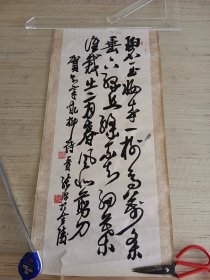 碧玉妆成一树高万条
垂下绿丝绦不知细叶
谁裁出二月春风似剪刀
贺知章咏柳诗